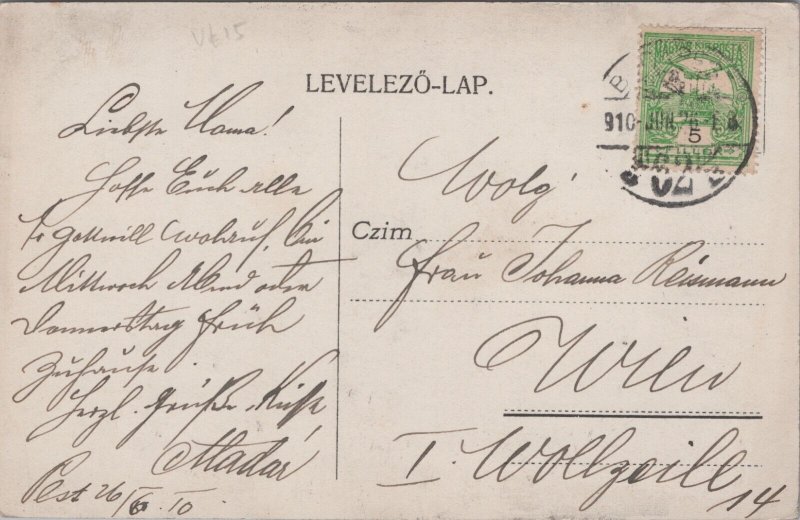 VK15
LEVELEZŐ-LAP.
MAGYAR KIR. POSTA
910 JUN 26
5
Liebste Mama!
Hoffe Euch alle
so gottwill wohlauf. Bin
Mittwoch Abend oder
Donnerstag früh
Zuhause.
Herzl. Grüße, Küsse
Aladár
Pest 26/6. 10
Wolg.
Czim
Frau Johanna Reismann
Wien
I. Wollzeile
14